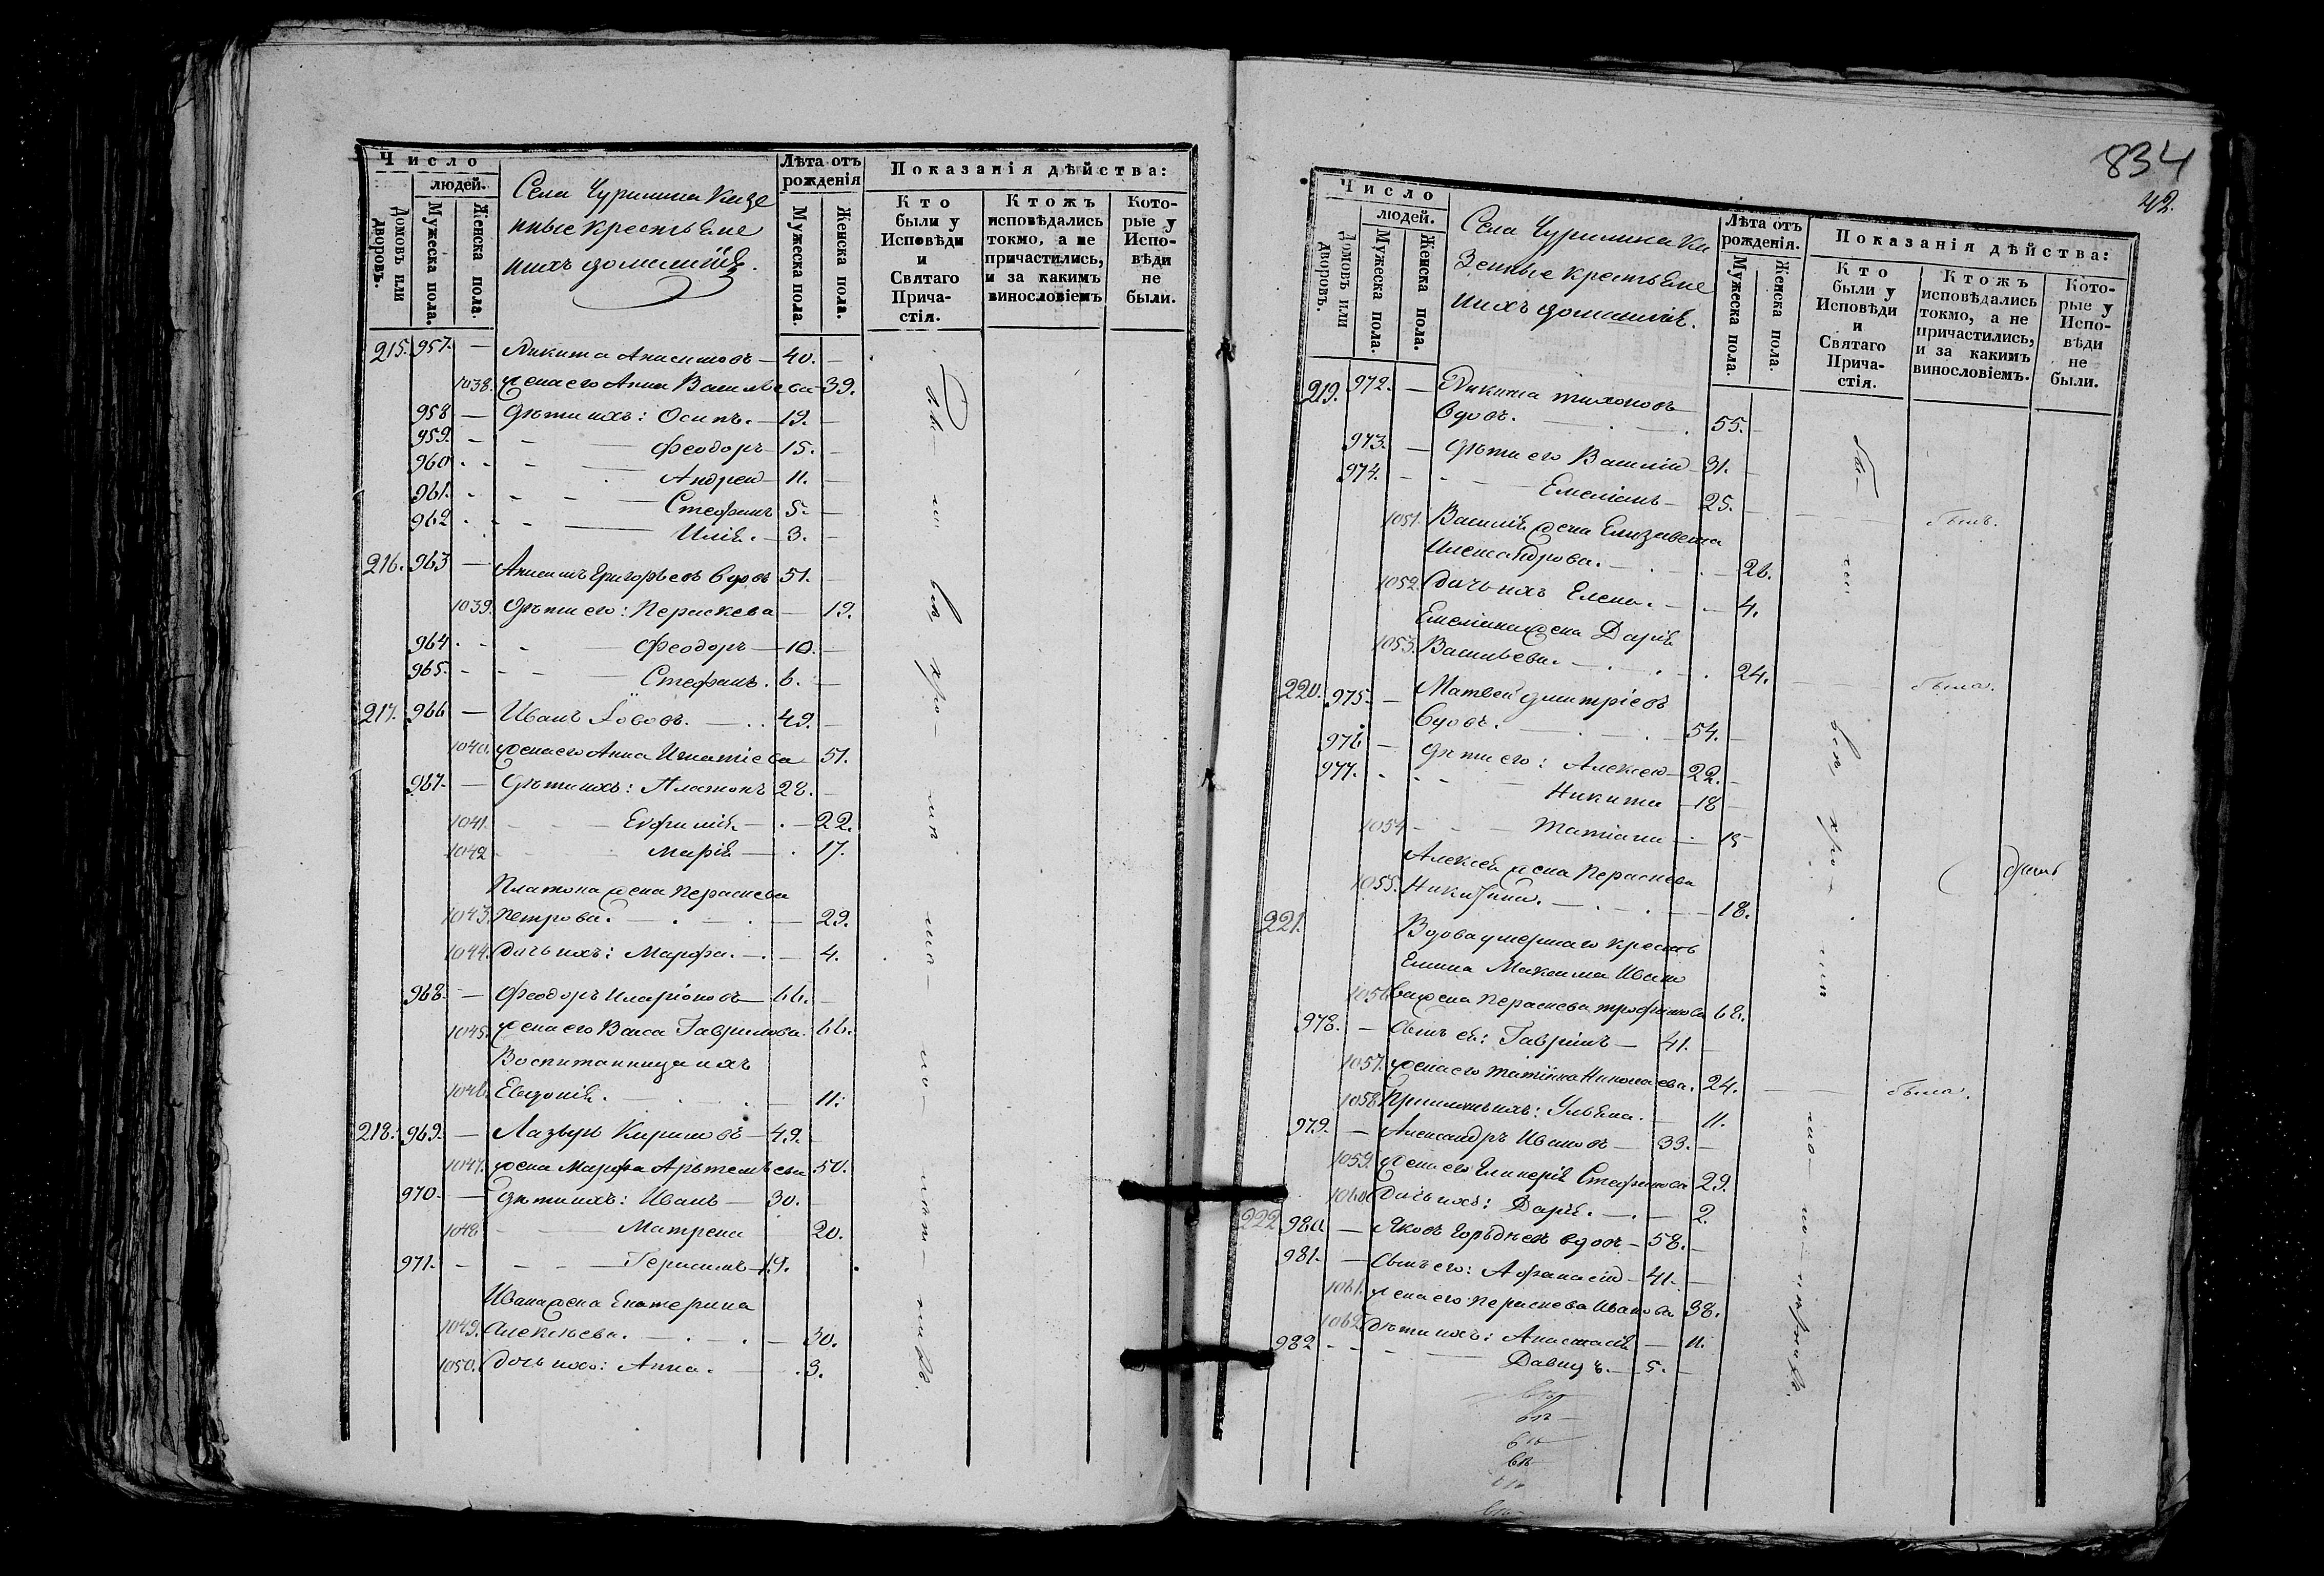 Число
людей.
Домовъ или дворовъ.
Мужеска пола.
Женска пола.
Села Чурилина Казе
нные крестьяне
и ихъ домашнія.
Лѣта отъ рожденія
Мужеска пола.
Женска пола.
Показанія дѣйства:
Кто были у Исповѣди и Святаго Прича- стія.
Ктожъ исповѣдались токмо, а не причастились, и за какимъ винословіемъ
Кото- рые у Испо- вѣди не были.
215. 957. — Никита Анисимовъ — 40. —
1038. жена его Анна Васильева 39.
958 — дѣти ихъ: Осипъ. — 19. —
959. — Феодоръ — 15. —
960 — Андрей — 11. —
961. — Стефанъ 5. —
962 — Илія. — 3. —
216. 963 — Анисимъ Григорьевъ вдовъ 51. —
1039. дѣти его: Параскева — 19.
964 — Феодоръ — 10. —
965. — Стефанъ. 6. —
217. 966 — Иванъ Іововъ. — 49. —
1040. жена его Анна Игнатіева 51.
967. — дѣти ихъ: Платонъ 28. —
1041. — Евфимія — 22.
1042 — Марія — 17.
Платона жена Параскева
1043. Петрова. — 29.
1044. дочь ихъ: Марфа. — 4.
968. — Феодоръ Иларіоновъ — 66. —
1045. жена его Васса Гаврилова. 66.
Воспитанница ихъ
1046. Евдокія. — 11.
218. 969. — Лазарь Кириловъ — 49. —
1047. жена Марфа Артемьева 50.
970. — дѣти ихъ: Иванъ — 30. —
1048 — Матрена 20.
971. — Герасимъ — 19.
Ивана жена Екатерина
1049. Алексѣева. — 30.
1050. дочь ихъ: Анна. — 3.
834
42.
Число
людей.
Домовъ или дворовъ.
Мужеска пола.
Женска пола.
Села Чурилина Ка
зенные крестьяне
и ихъ домашнія.
Лѣта отъ рожденія.
Мужеска пола.
Женска пола.
Показанія дѣйства:
Кто были у Исповѣди и Святаго Прича- стія.
Ктожъ исповѣдались токмо, а не причастились, и за какимъ винословіемъ.
Кото- рые у Испо- вѣди не были.
219. 972. — Никита Тихоновъ
вдовъ. — 55. —
973. — дѣти его Василій — 31. —
974. — Емеліанъ — 25. — былъ.
1051. Василія жена Елизавета
Александрова. — 26.
1052. дочь ихъ Елена. — 4.
Емеліана жена Дарія
1053. Васильева. — 24. — была.
220. 975. — Матвей Дмитріевъ
вдовъ. — 54. —
976 — дѣти его: Алексей — 22. —
977. — Никита — 18 —
1054 — Татіана — 15
Алексея жена Параскева
1055. Никитина. — 18.
221. Вдова умершаго кресть
янина Максима Ивано
1056 ва жена Параскева Трофимова 62.
978. — сынъ ея: Гавріилъ — 41. —
1057. жена его Татіана Николаева. 24. — была.
1058. Ульяна. — 11.
979. — Александръ Ивановъ — 33. —
1059. жена его Гликерія Стефанова 29.
1060. дочь ихъ: Дарья. — 2.
222 980. — Яковъ вдовъ — 58. —
981. — сынъ его: Афанасій — 41. —
1061. жена его Параскева Иванова 38.
1062. дѣти ихъ: Анастасія — 11.
982 — Давидъ. — 5. —